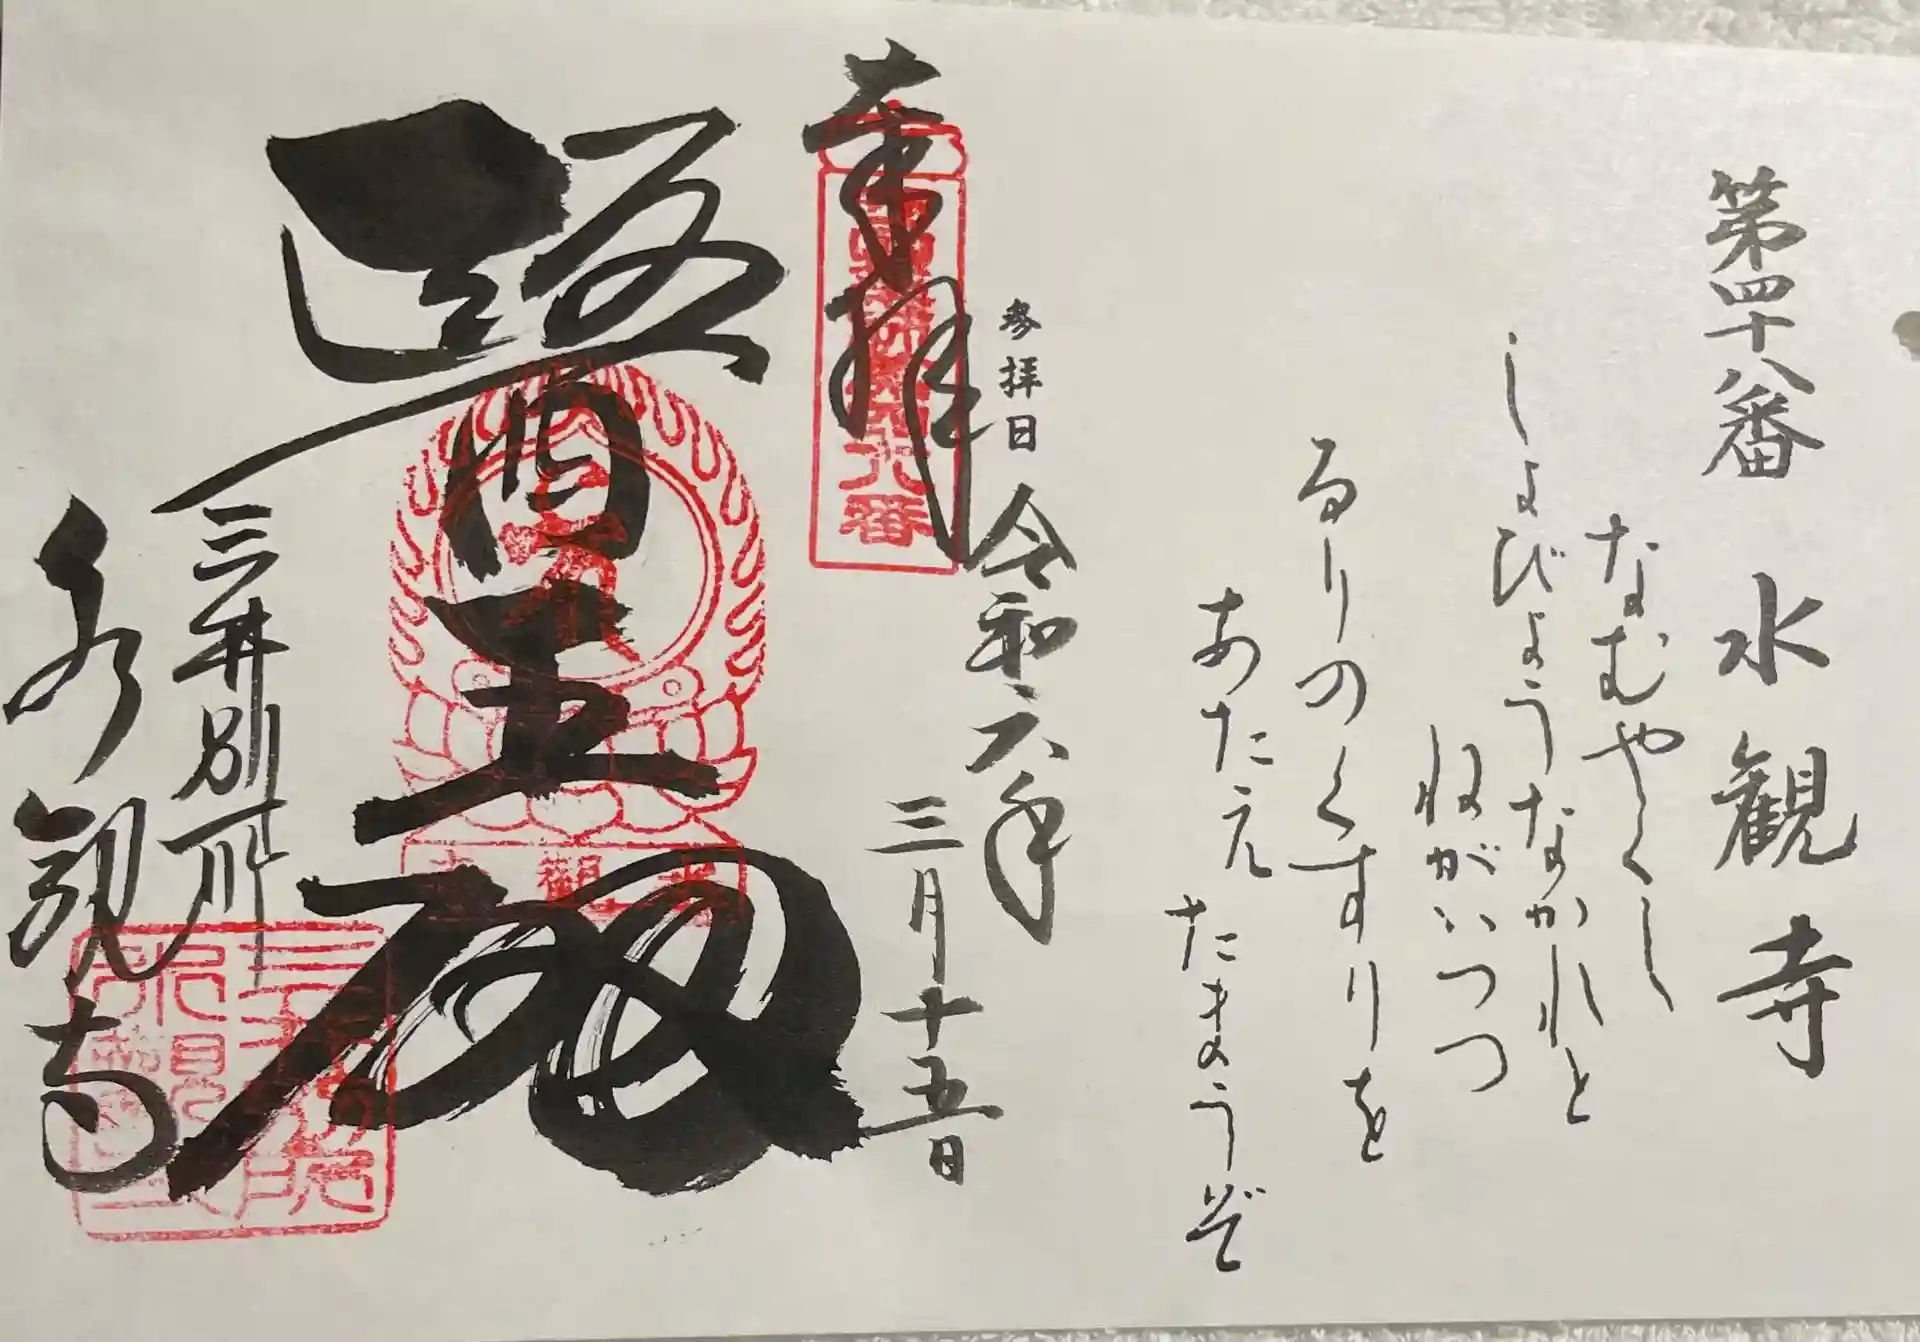 第四十八番 水観寺
なむやくし
しょびょうなかれと
ねがいつつ
るりのくすりを
あたえたまうぞ
参拝日 令和六年
三月十五日
奉拝
醫王殿
三井別所
水観寺